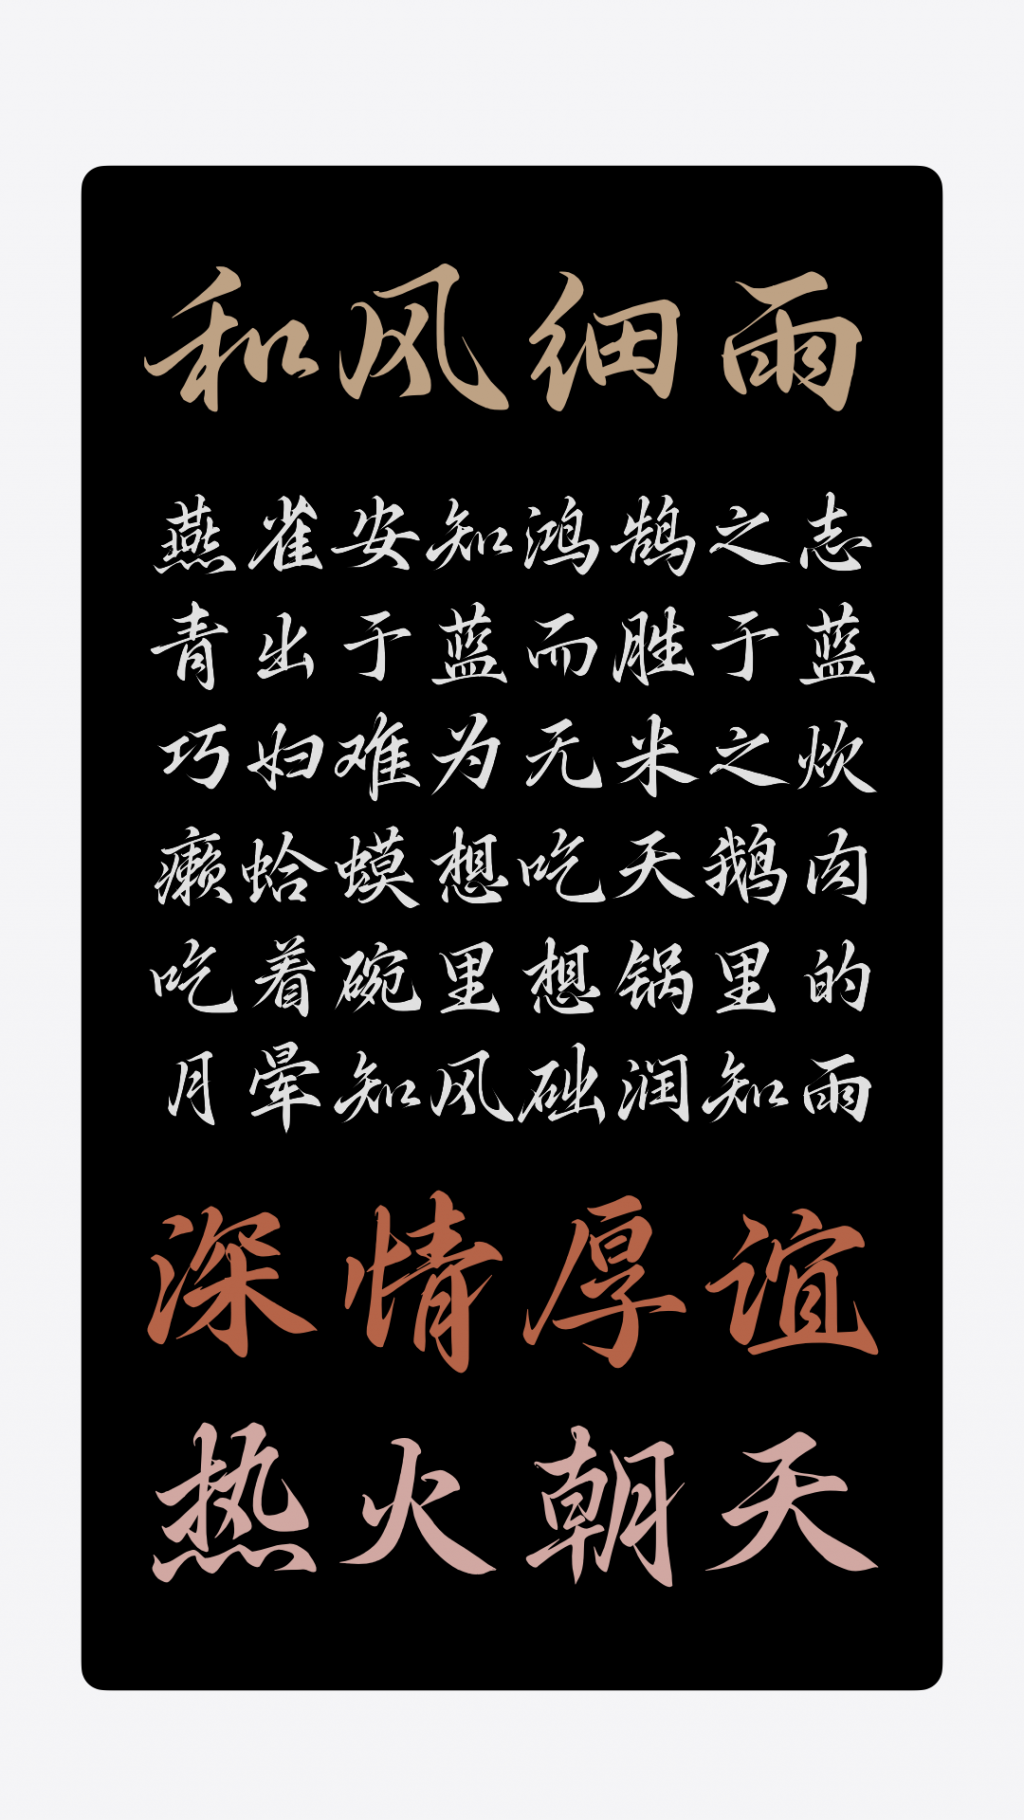 和风细雨
燕雀安知鸿鹄之志
青出于蓝而胜于蓝
巧妇难为无米之炊
癞蛤蟆想吃天鹅肉
吃着碗里想锅里的
月晕知风础润知雨
深情厚谊
热火朝天